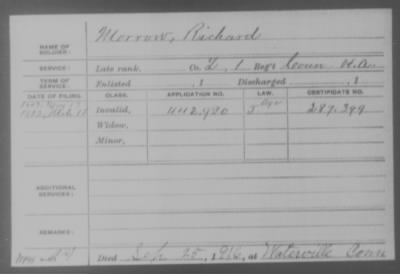 Morrow, Richard
NAME OF SOLDIER:
SERVICE: Late rank, Co. L, 1 Reg't Conn H.A.
TERM OF SERVICE: Enlisted , 1 Discharged , 1
DATE OF FILING. CLASS. APPLICATION NO. LAW. CERTIFICATE NO.
Invalid, 442.920 Age 289.399
Widow,
Minor,
ADDITIONAL SERVICES:
REMARKS:
Died Sep 25, 1916, at Waterville Conn